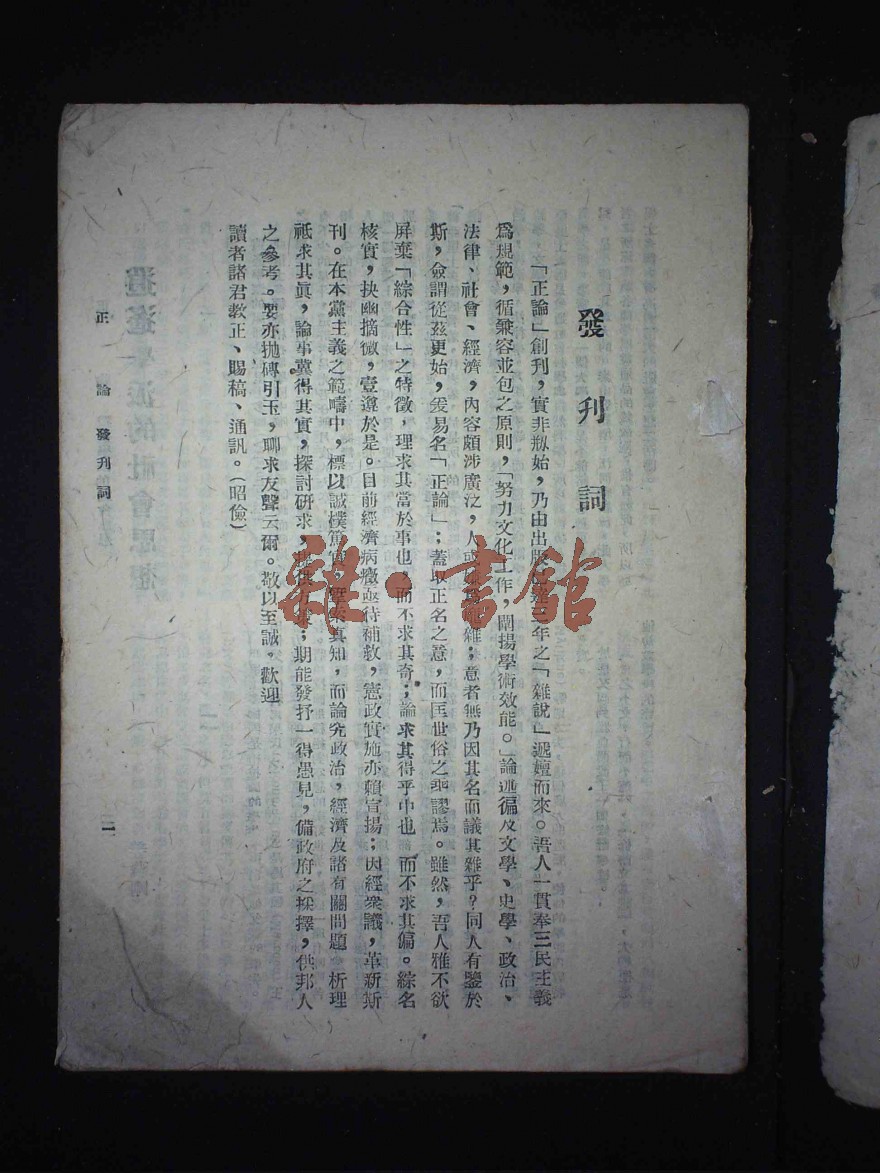 發刊詞
「正論」創刊，實非剏始，乃由出版 年之「雜說」遞嬗而來。吾人一貫奉三民主義
為規範，循兼容並包之原則，「努力文化工作，闡揚學術效能。」論述徧及文學、史學、政治、
法律、社會、經濟，內容頗涉廣泛，人或 雜；意者無乃因其名而議其雜乎？同人有鑒於
斯，僉謂從茲更始，爰易名「正論」；蓋取正名之意，而匡世俗之乖謬焉。雖然，吾人雅不欲
屏棄「綜合性」之特徵，理求其當於事也，而不求其奇；論求其得乎中也 而不求其偏。綜名
核實，抉幽摘微，壹遵於是。目前經濟病癥亟待補救，憲政實施亦賴宣揚；因經衆議，革新斯
刊。在本黨主義之範疇中，標以誠樸篤實， 真知，而論究政治，經濟及諸有關問題 析理
祇求其眞，論事冀得其實，探討研求， ；期能發抒一得愚見，備政府之採擇，供邦人
之參考。要亦拋磚引玉，聊求友聲云爾。敬以至誠。歡迎
讀者諸君敎正、賜稿、通訊。（昭儉）
正論 發刊詞 一
雜·書館